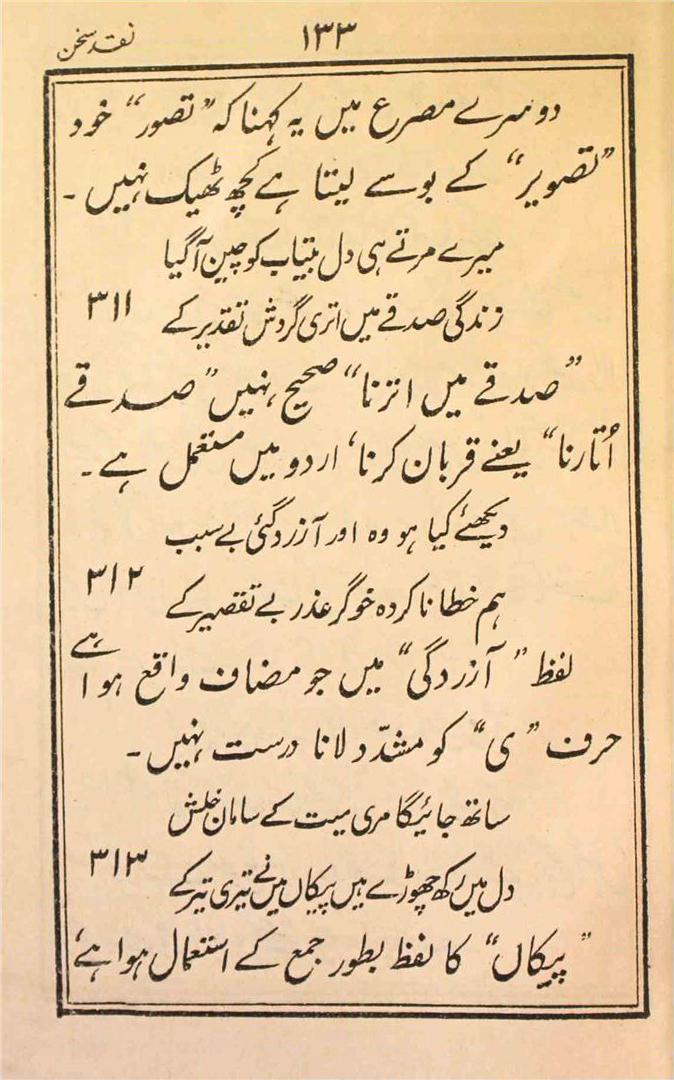 نقد سخن
۱۳۳
دوسرے مصرع میں یہ کہنا کہ ”تصور“ خود
”تصویر“ کے بوسے لیتا ہے کچھ ٹھیک نہیں۔
میرے مرتے ہی دل بیتاب کو چین آگیا
زندگی صدقے میں اتری گردش تقدیر کے ۳۱۱
”صدقے میں اترنا“ صحیح نہیں ”صدقے
اُتارنا“ یعنے قربان کرنا، اردو میں مستعمل ہے۔
دیکھئے کیا ہو وہ اور آزردگئی بے سبب
ہم خطا ناکردہ خوگر عذر بے تقصیر کے ۳۱۲
لفظ ”آزردگی“ میں جو مضاف واقع ہوا ہے
حرف ”ی“ کو مشدّد لانا درست نہیں۔
ساتھ جائیگا مری میت کے سامان خلش
دل میں رکھ چھوڑے ہیں پیکاں میں نے تیری تیر کے ۳۱۳
”پیکاں“ کا لفظ بطور جمع کے استعمال ہوا ہے،